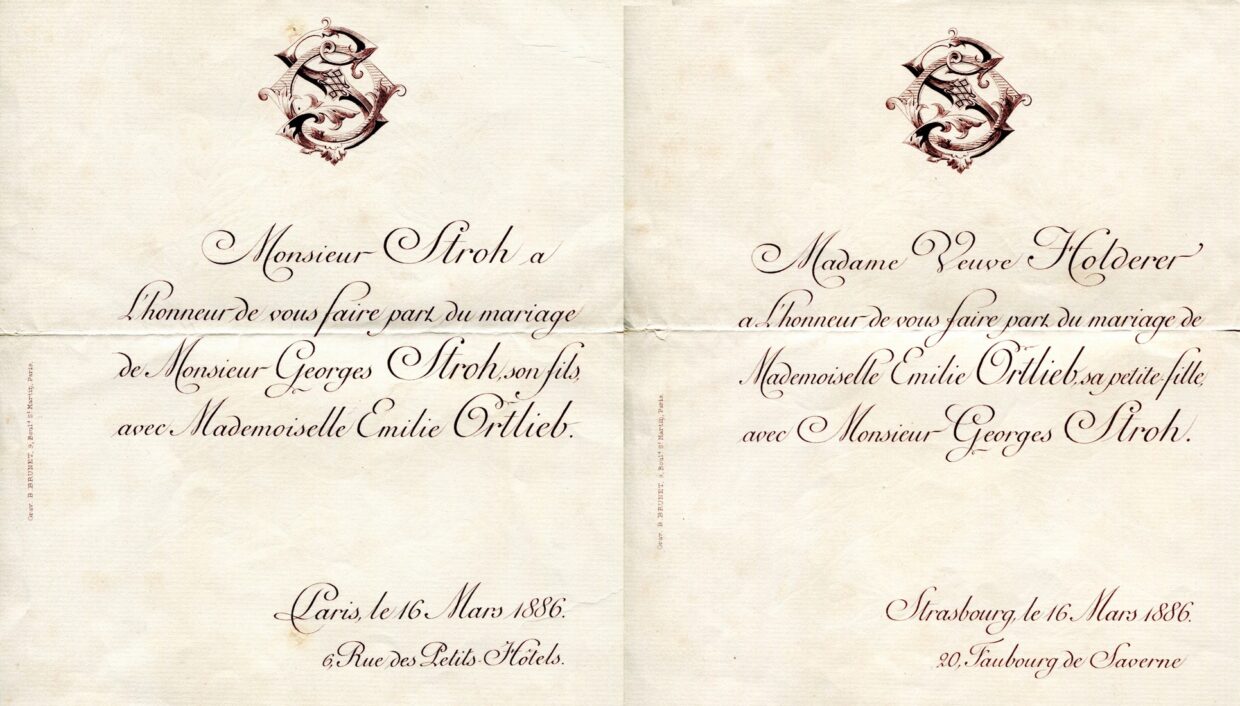 Monsieur Stroh a
l'honneur de vous faire part du mariage
de Monsieur Georges Stroh, son fils,
avec Mademoiselle Emilie Ortlieb.
Paris, le 16 Mars 1886.
6, Rue des Petits-Hôtels.
Grav. B. BRUNET, 9, Boulᵈ Sᵗ Martin, Paris.
Madame Veuve Holderer
a l'honneur de vous faire part du mariage de
Mademoiselle Emilie Ortlieb, sa petite-fille,
avec Monsieur Georges Stroh.
Strasbourg, le 16 Mars 1886.
20, Faubourg de Saverne
Grav. B. BRUNET, 9, Boulᵈ Sᵗ Martin, Paris.